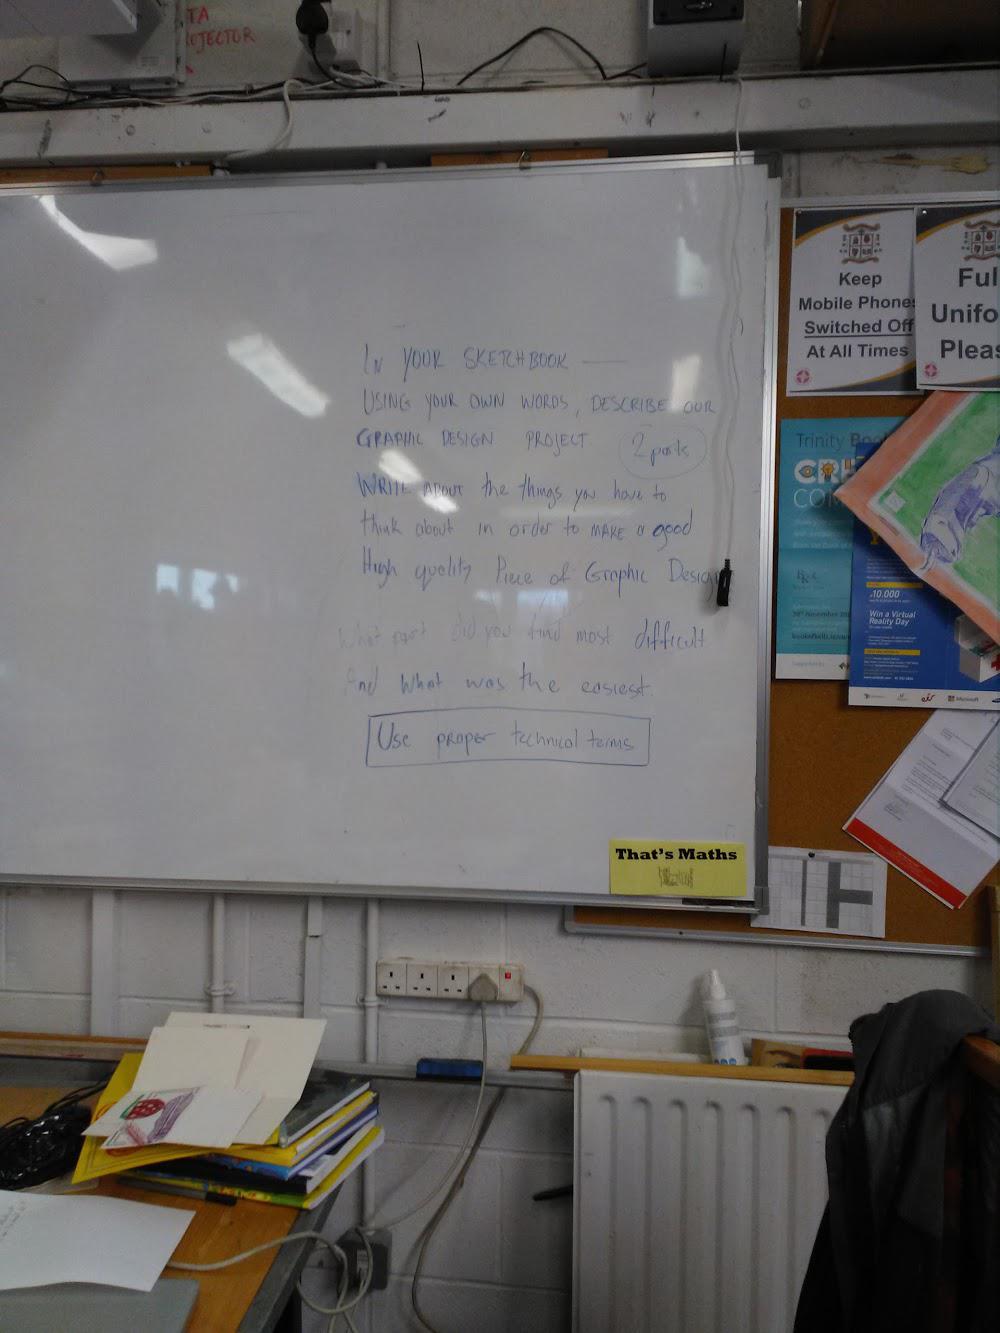 TA
IN YOUR SKETCHBOOK —
USING YOUR OWN WORDS, DESCRIBE OUR
GRAPHIC DESIGN PROJECT 2 parts
WRITE ABOUT the things you have to
think about in order to MAKE a good
High quality Piece of Graphic Design
What part did you find most difficult
And What was the easiest.
Use proper technical terms
That's Maths
Keep
Mobile Phones
Switched Off
At All Times
Ful
Unifo
Pleas
Trinity Boo
CRE
COM
10.000
Win a Virtual
Reality Day
eir
Microsoft